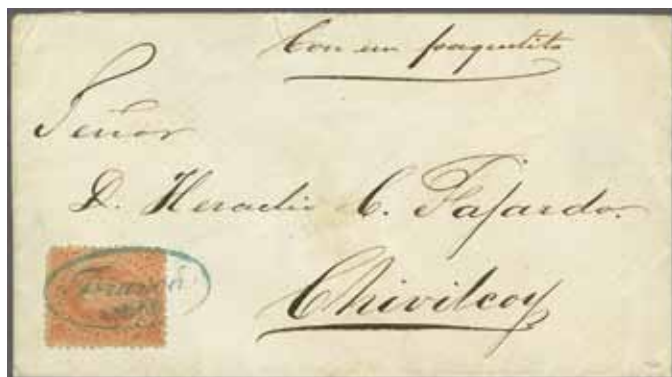 Con un paquetito
Señor
D. Heraclio C. Fajardo.
Chivilcoy
Franca